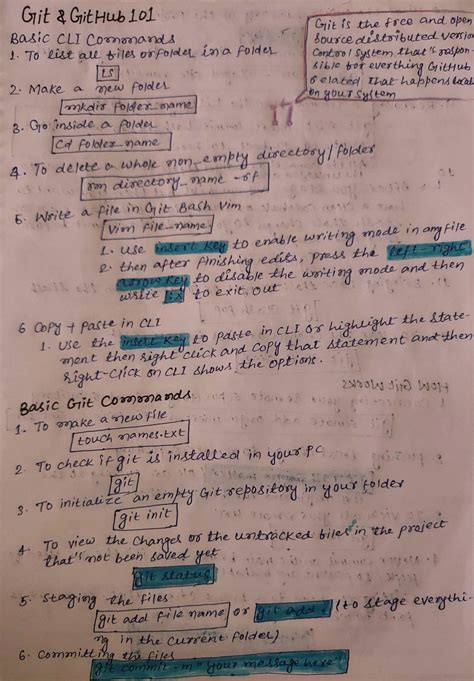 Git & GitHub 101
Git is the free and open
source distributed version
control system that's respon
sible for everthing GitHub
related that happens local
on your system
Basic CLI Commands
1. To list all files or folder in a folder
ls
2. Make a new folder
mkdir folder_name
3. Go inside a folder
cd folder_name
4. To delete a whole non_empty directory/folder
rm directory_name -rf
5. Write a file in Git Bash Vim
vim file_name
1. use insert key to enable writing mode in any file
2. then after finishing edits, press the left-right
arrow key to disable the writing mode and then
write :x to exit out
6 Copy + Paste in CLI
1. Use the insert key to paste in CLI or highlight the state-
ment then right click and copy that statement and then
right-click on CLI shows the options.
Basic Git Commands
1. To make a new file
touch names.txt
2. To check if git is installed in your PC
git
3. To initialize an empty Git repository in your folder
git init
4. To view the changes or the untracked files in the project
that's not been saved yet
git status
5. Staging the files
git add file name or git add . (to stage everythi-
ng in the current folder)
6. Committing the files
git commit -m "your message here"